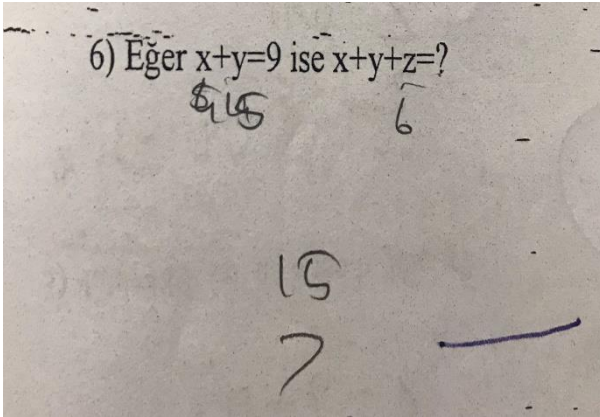 6) Eğer x+y=9 ise x+y+z=?
6
15
7